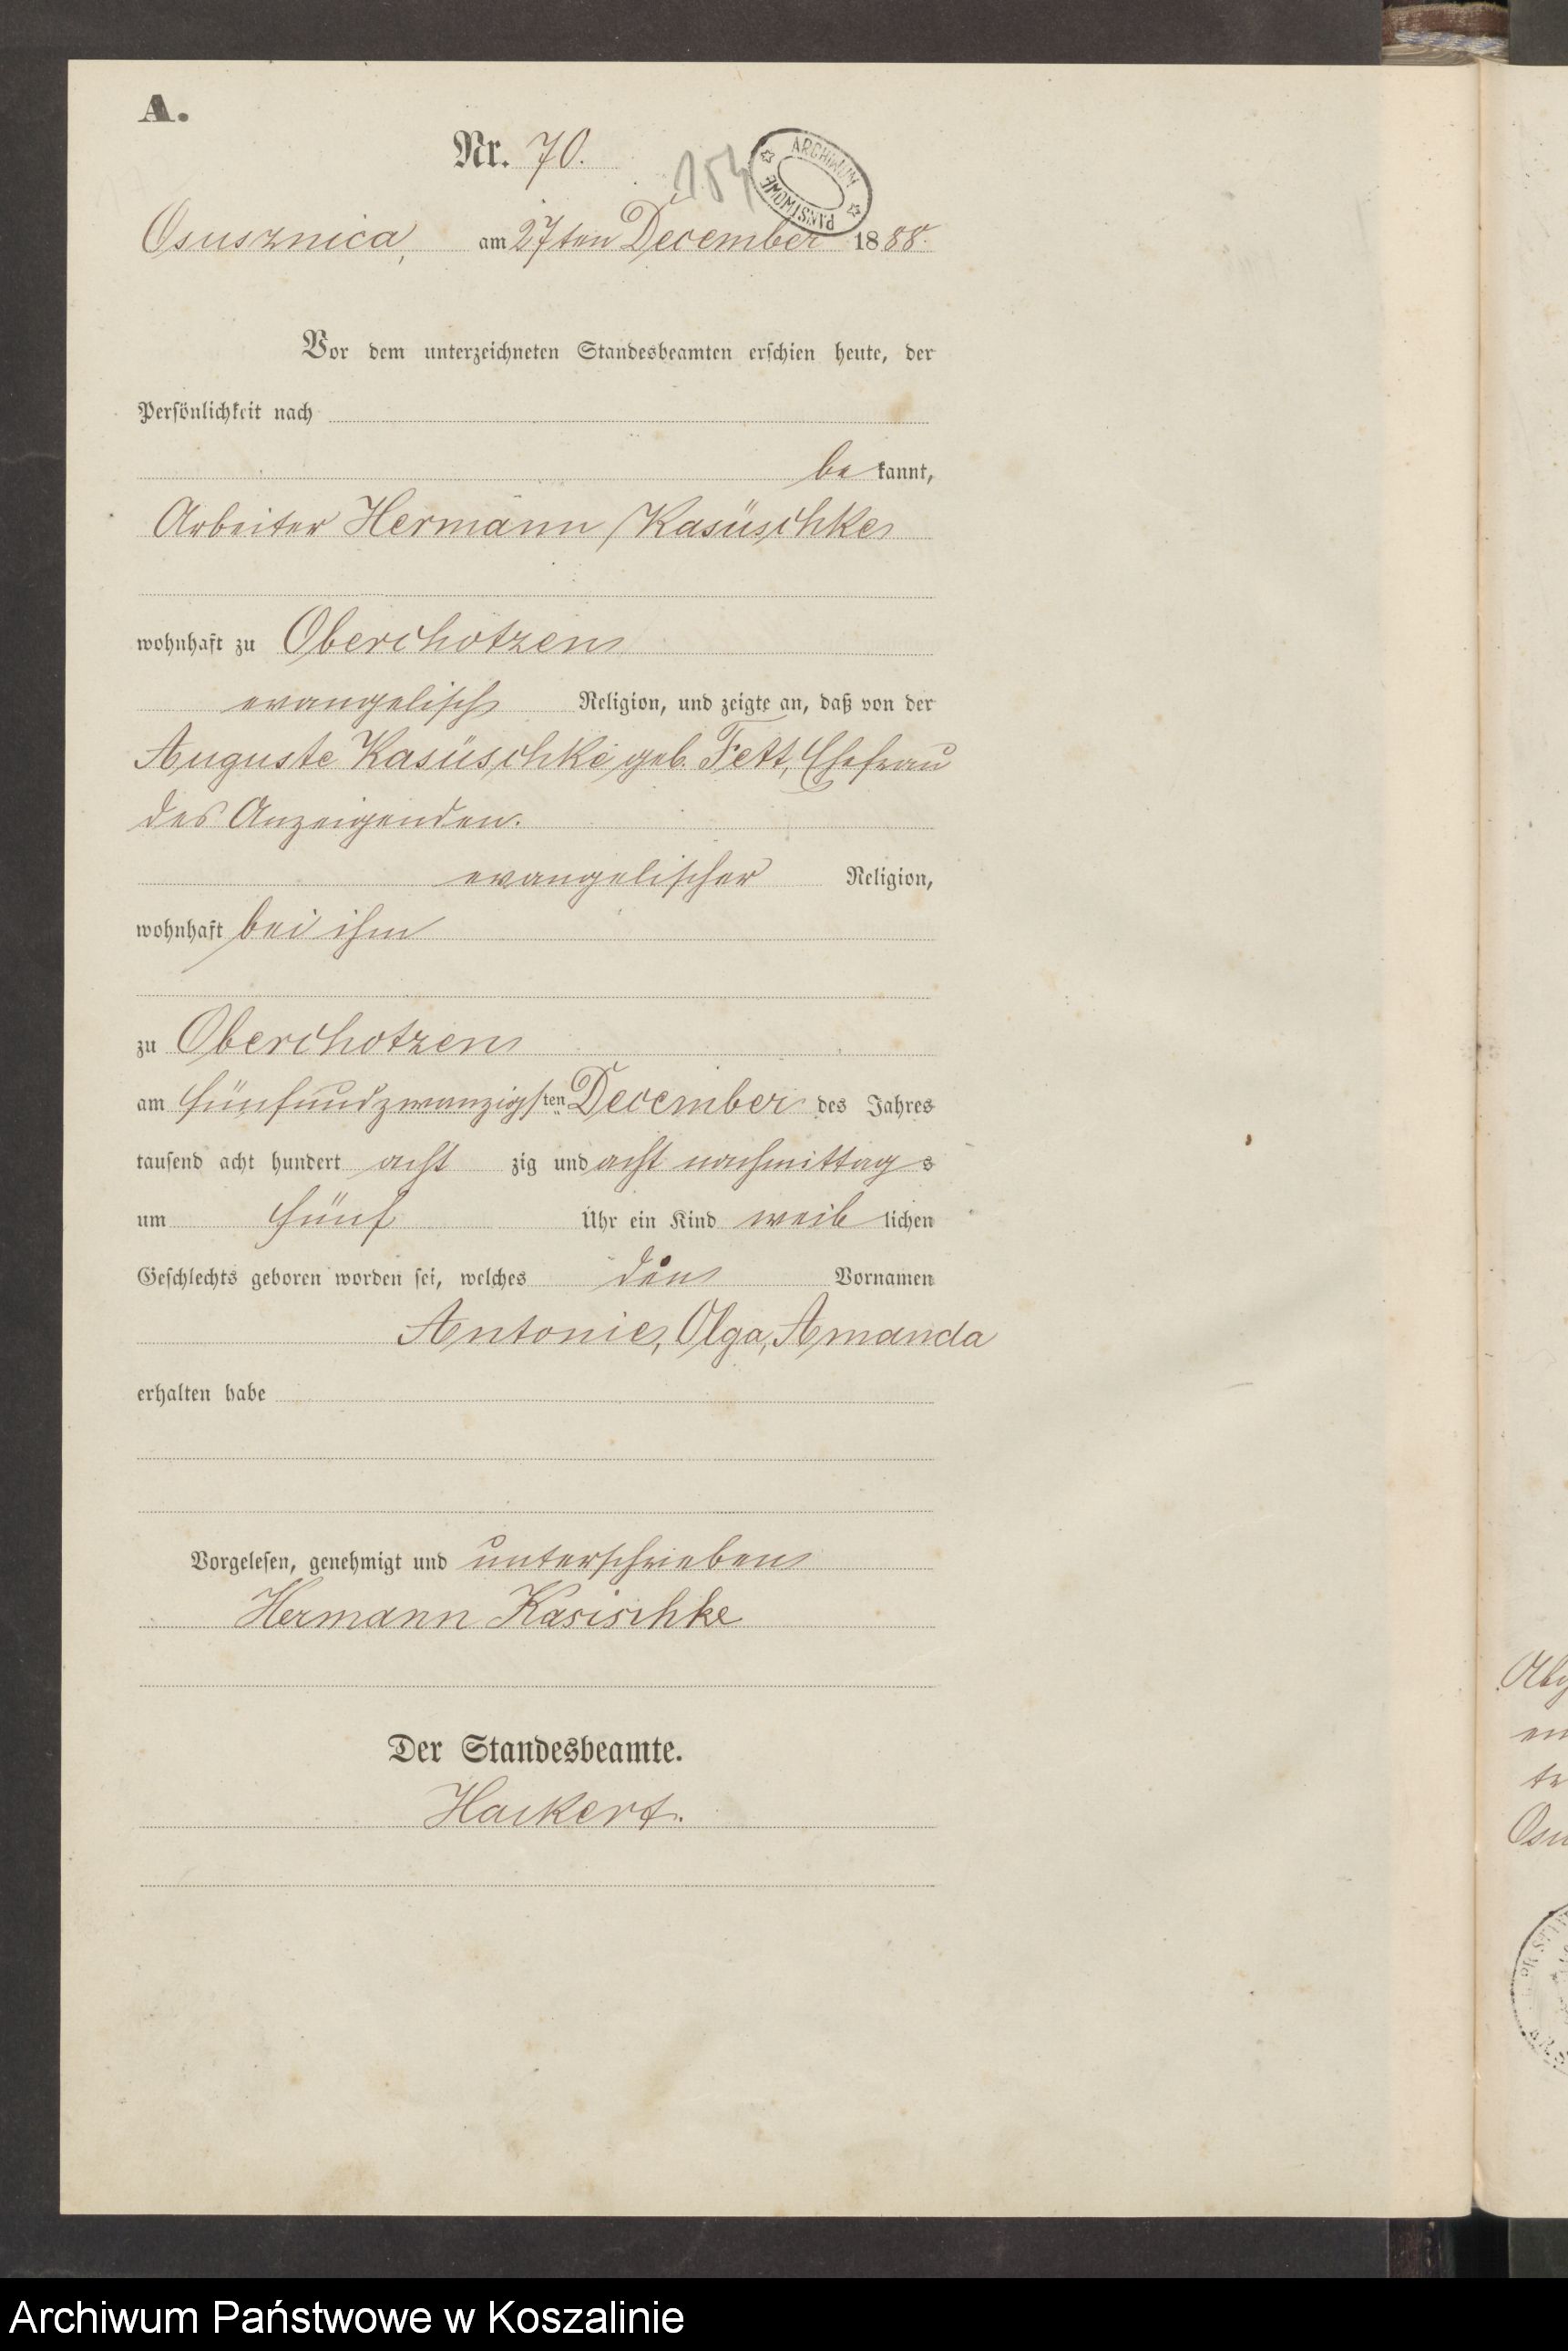 A.
Nr. 70.
154
ARCHIWUM PAŃSTWOWE
Osusznica, am 27ten December 1888.
Vor dem unterzeichneten Standesbeamten erschien heute, der
Persönlichkeit nach
be kannt,
Arbeiter Hermann Kasüschke
wohnhaft zu Oberchotzen
evangelisch Religion, und zeigte an, daß von der
Auguste Kasüschke geb. Fett, Ehefrau
des Anzeigenden.
evangelischer Religion,
wohnhaft bei ihm
zu Oberchotzen
am fünfundzwanzigsten December des Jahres
tausend acht hundert acht zig und acht nachmittag s
um fünf Uhr ein Kind weib lichen
Geschlechts geboren worden sei, welches den Vornamen
Antonie, Olga, Amanda
erhalten habe
Vorgelesen, genehmigt und unterschrieben
Hermann Kasischke
Der Standesbeamte.
Hackert.
Archiwum Państwowe w Koszalinie